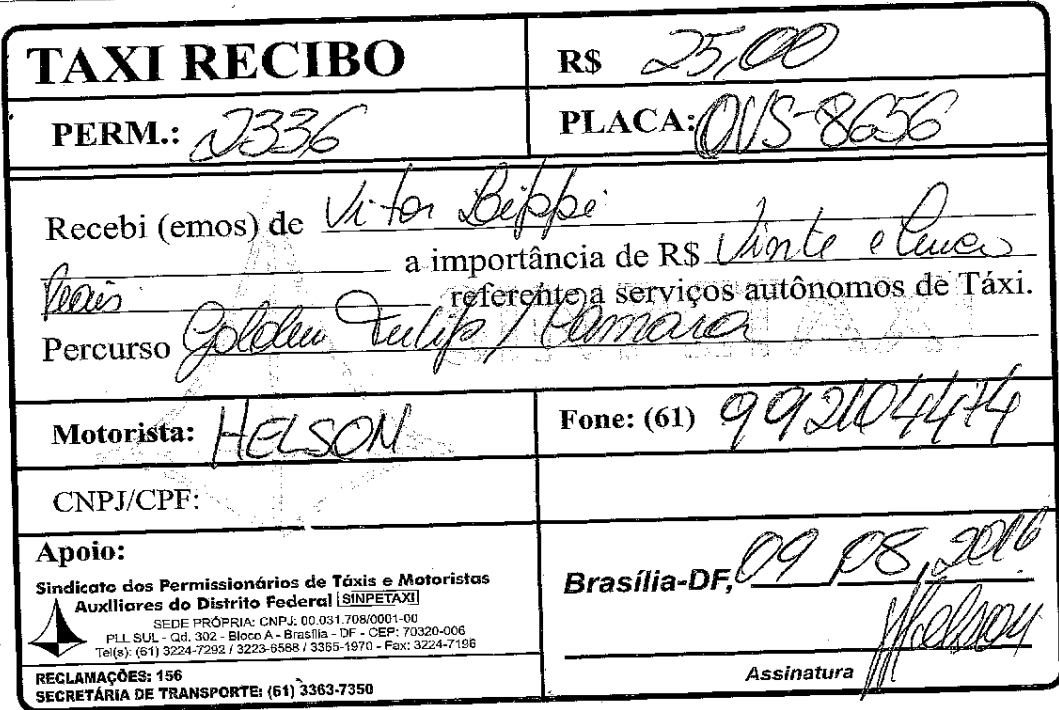 TAXI RECIBO R$ 25,00
PERM.: 2336 PLACA: OVS-8656
Recebi (emos) de Vitor Bippi
a importância de R$ Vinte e Cinco
Reais referente a serviços autônomos de Táxi.
Percurso Golden Tulip / Câmara
Motorista: HELSON Fone: (61) 992104474
CNPJ/CPF:
Apoio:
Sindicato dos Permissionários de Táxis e Motoristas
Auxiliares do Distrito Federal SINPETAXI
SEDE PRÓPRIA: CNPJ: 00.031.708/0001-00
PLL SUL - Qd. 302 - Bloco A - Brasília - DF - CEP: 70320-006
Tel(s): (61) 3224-7292 / 3223-6588 / 3365-1970 - Fax: 3224-7196
RECLAMAÇÕES: 156
SECRETÁRIA DE TRANSPORTE: (61) 3363-7350
Brasília-DF, 09 / 08, 2016
Helson
Assinatura